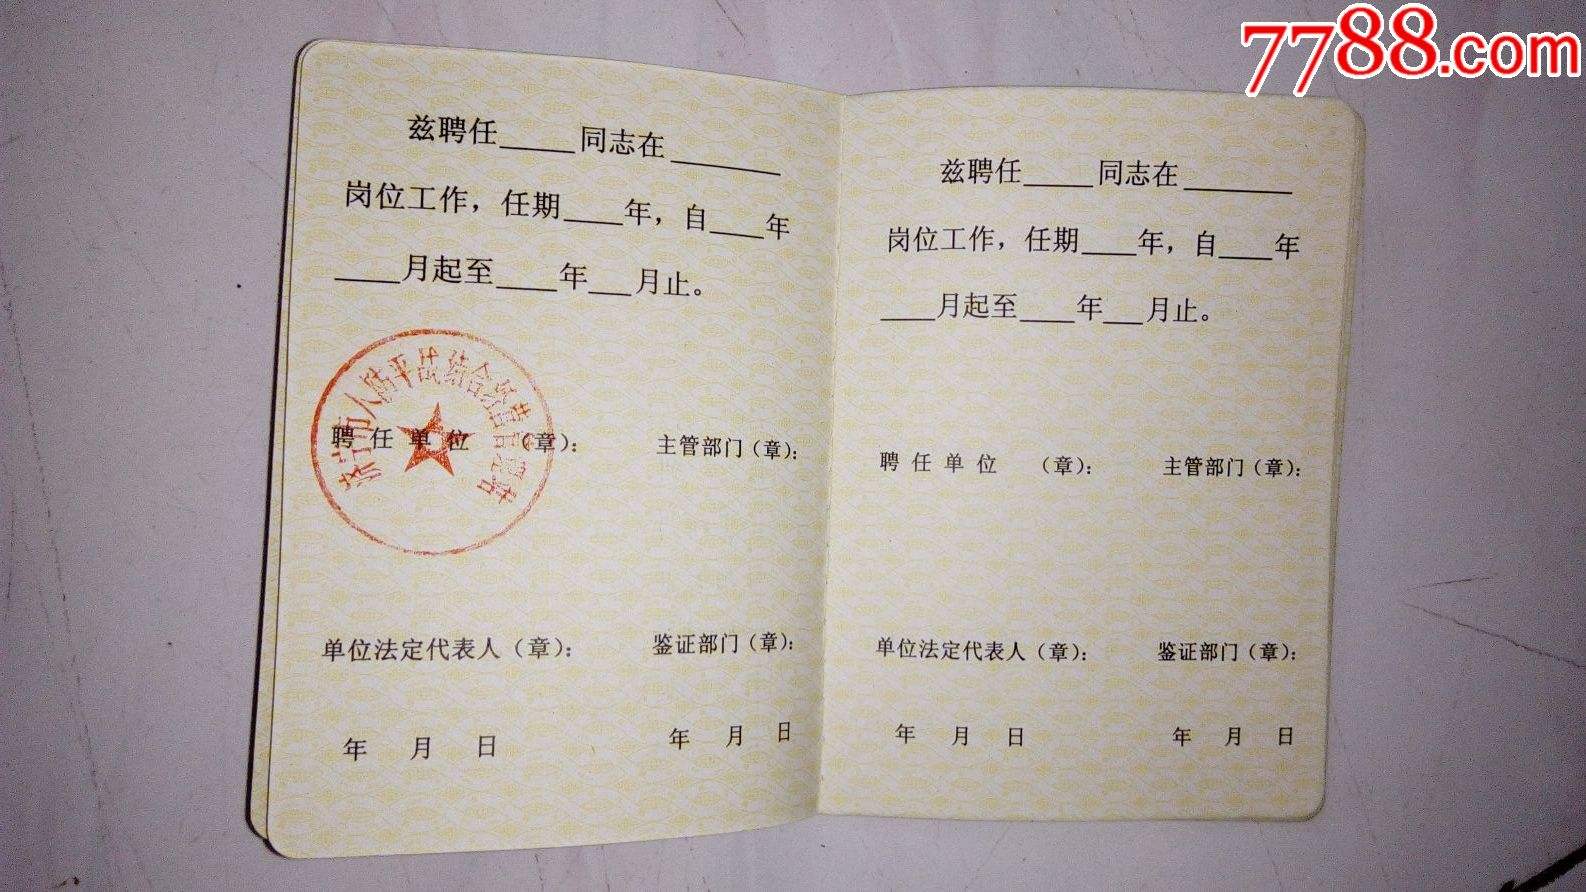 7788.com
兹聘任_____同志在________
岗位工作，任期____年，自____年
____月起至____年___月止。
聘任单位（章）：　主管部门（章）：
单位法定代表人（章）：　鉴证部门（章）：
年　月　日　年　月　日
市人防平战结合
兹聘任_____同志在________
岗位工作，任期____年，自____年
____月起至____年___月止。
聘任单位（章）：　主管部门（章）：
单位法定代表人（章）：　鉴证部门（章）：
年　月　日　年　月　日